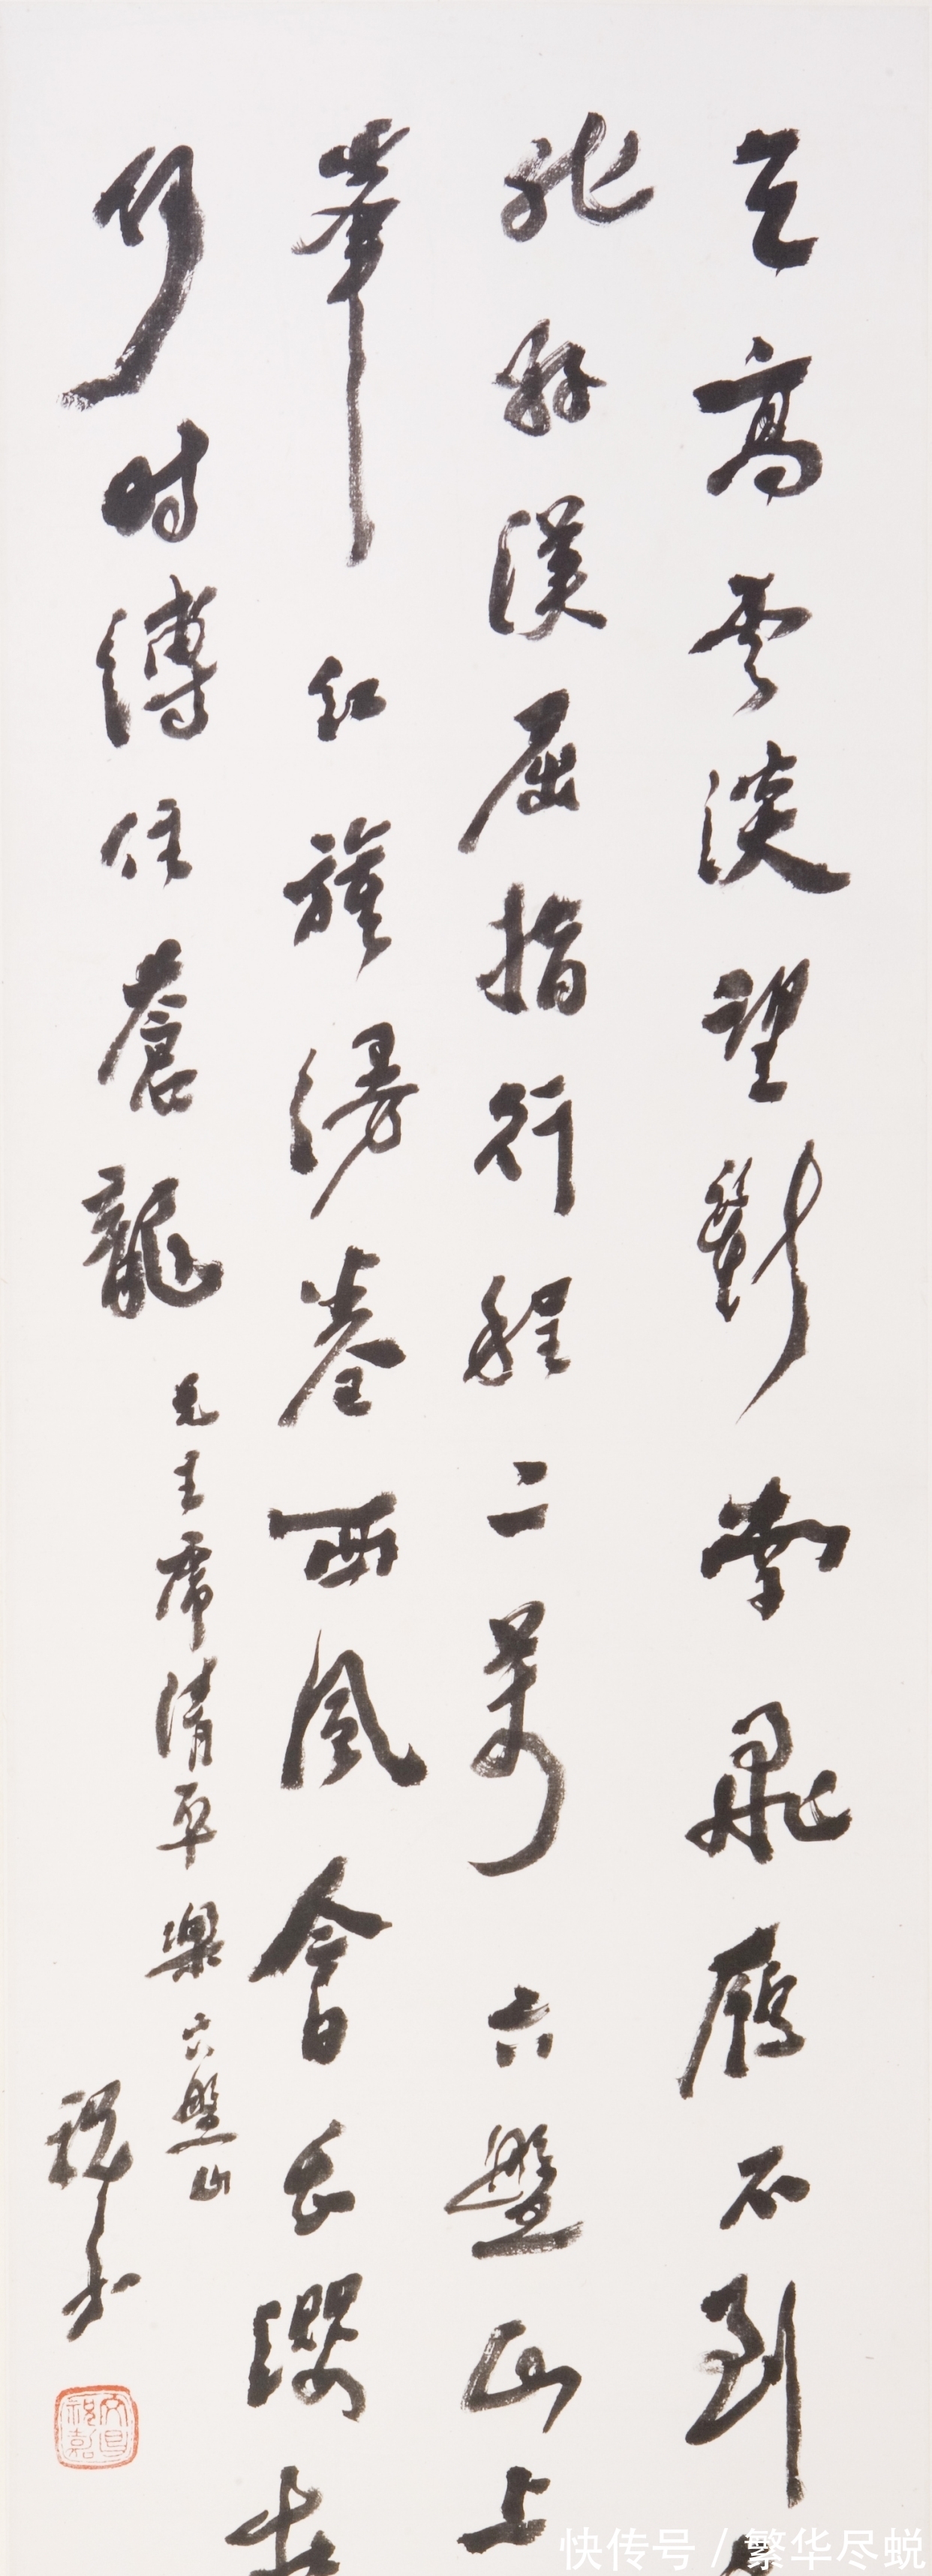 天高雲淡望斷南飛雁不到
非好漢屈指行程二萬六盤山上
峯紅旗漫卷西風今日長纓在
何時縛住蒼龍
毛主席清平樂六盤山
祝
文昌祝嘉
快传号 / 繁华尽蜕